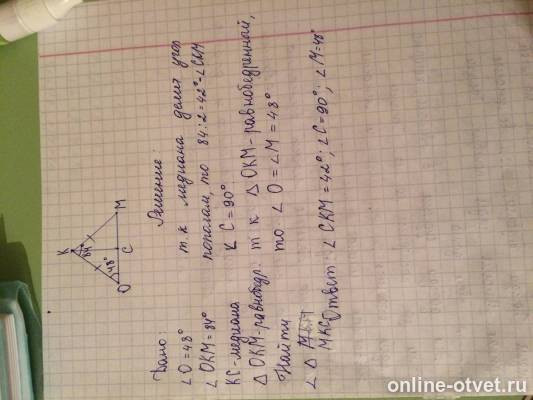 K
84°
48°
O
C
M
Дано:
∠O=48°
∠OKM=84°
KC-медиана
△OKM-равнобедр.
Найти
∠ △ MKC
Решение:
т.к медиана делит угол
пополам, то 84:2=42°-∠CKM
∠C=90°
т к △OKM-равнобедренный,
то ∠O=∠M=48°
Ответ: ∠CKM=42°; ∠C=90°; ∠M=48°
online-otvet.ru